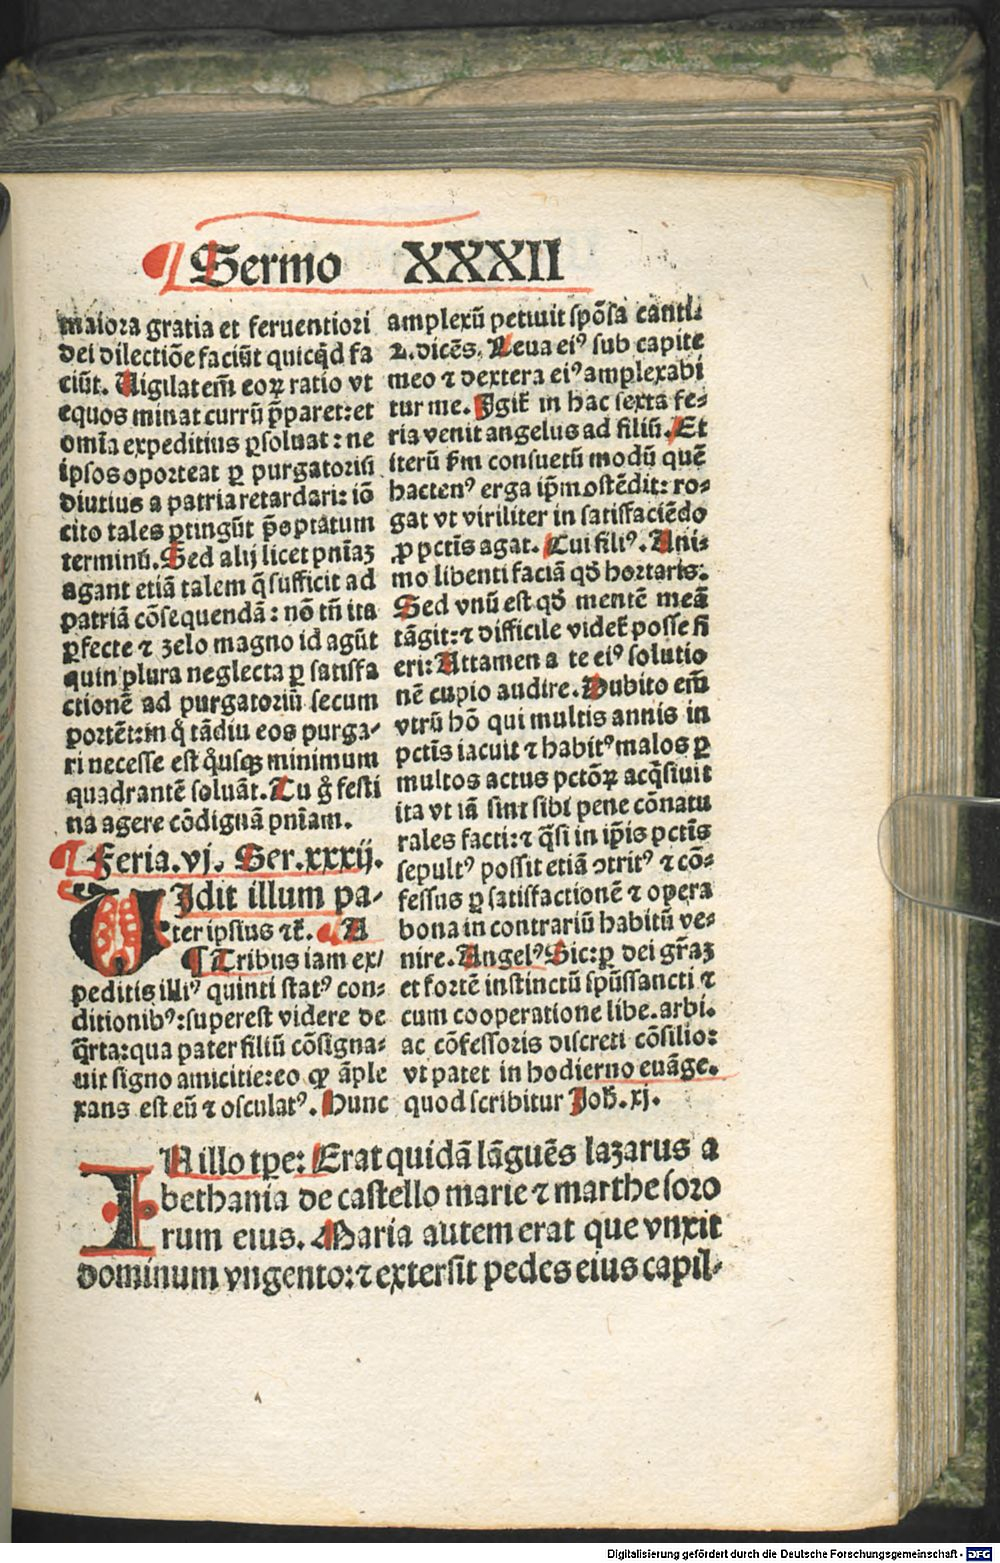 Sermo XXXII
maiora gratia et feruentiori
dei dilectiōe faciūt quicq̄d fa
ciūt. Uigilat em̄ eoꝝ ratio vt
equos minat currū p̄paret: et
om̄ia expeditius ꝑsoluat: ne
ipsos oporteat ꝑ purgatoriū
diutius a patria retardari: iō
cito tales ꝑtingūt p̄optatum
terminū. Sed alij licet pn̄iaꝫ
agant etiā talem q̄ sufficit ad
patriā cōsequendā: nō tn̄ ita
ꝑfecte ⁊ zelo magno id agūt
quin plura neglecta ꝑ satisfa
ctionē ad purgatoriū secum
portēt: in q̊ tādiu eos purga-
ri necesse est q̊usqꝫ minimum
quadrantē soluāt. Tu g̊ festi
na agere cōdignā pn̄iam.
Feria. vj. Ser. xxxij.
UIdit illum pa-
ter ipsius ⁊c̄. A
¶ Tribus iam ex/
peditis illiꝰ quinti statꝰ con-
ditionibꝰ: superest videre de
q̄rta: qua pater filiū cōsigna-
uit signo amicitie: eo ꝙ āple
xans est eū ⁊ osculatꝰ. Hunc
amplexū petiuit spōsa canti.
2. dicēs. Leua eiꝰ sub capite
meo ⁊ dextera eiꝰ amplexabi
tur me. Igit̄ in hac sexta fe-
ria venit angelus ad filiū. Et
iterū ẜm consuetū modū quē
hactenꝰ erga ip̄m ostēdit: ro-
gat vt viriliter in satisfaciēdo
ꝓ pctīs agat. Cui filiꝰ. Ani-
mo libenti faciā qđ hortaris.
Sed vnū est qđ mentē meā
tāgit: ⁊ difficile videt̄ posse fi
eri: Attamen a te eiꝰ solutio
nē cupio audire. Dubito em̄
vtrū hō qui multis annis in
pctīs iacuit ⁊ habitꝰ malos ꝑ
multos actus pctōꝝ acq̄siuit
ita vt iā sint sibi pene cōnatu
rales facti: ⁊ q̄si in ip̄is pctīs
sepultꝰ possit etiā ↄtritꝰ ⁊ cō-
fessus ꝑ satisfactionē ⁊ opera
bona in contrariū habitū ve-
nire. Angelꝰ Sic: ꝑ dei gr̄aꝫ
et fortē instinctū spūssancti ⁊
cum cooperatione libe. arbi.
ac cōfessoris discreti cōsilio:
vt patet in hodierno euāge.
quod scribitur Joh̄. xj.
IN illo tꝑe: Erat quidā lāguēs lazarus a
bethania de castello marie ⁊ marthe soro
rum eius. Maria autem erat que vnxit
dominum vngento: ⁊ extersit pedes eius capil-
Digitalisierung gefördert durch die Deutsche Forschungsgemeinschaft - DFG